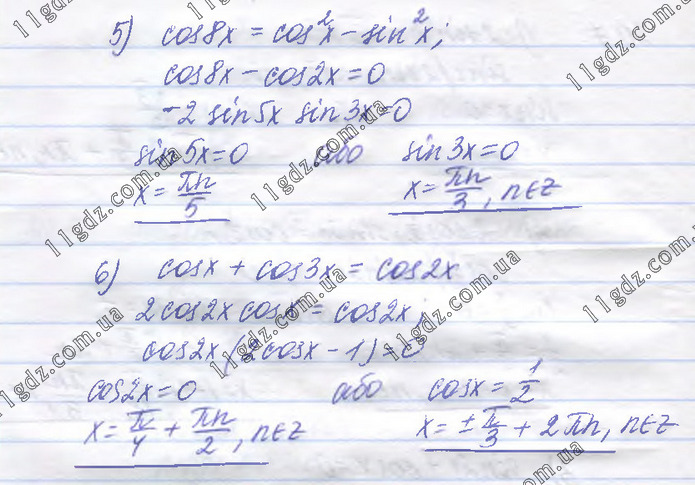 5) cos8x = cos²x - sin²x;
cos8x - cos2x = 0
-2 sin5x sin3x = 0
sin5x = 0 або sin3x = 0
x = πn/5 x = πn/3, n∈Z
6) cosx + cos3x = cos2x
2cos2x cosx = cos2x
cos2x (2cosx - 1) = 0
cos2x = 0 або cosx = 1/2
x = π/4 + πn/2, n∈Z x = ±π/3 + 2πn, n∈Z
11gdz.com.ua
11gdz.com.ua
11gdz.com.ua
11gdz.com.ua
11gdz.com.ua
11gdz.com.ua
11gdz.com.ua
11gdz.com.ua